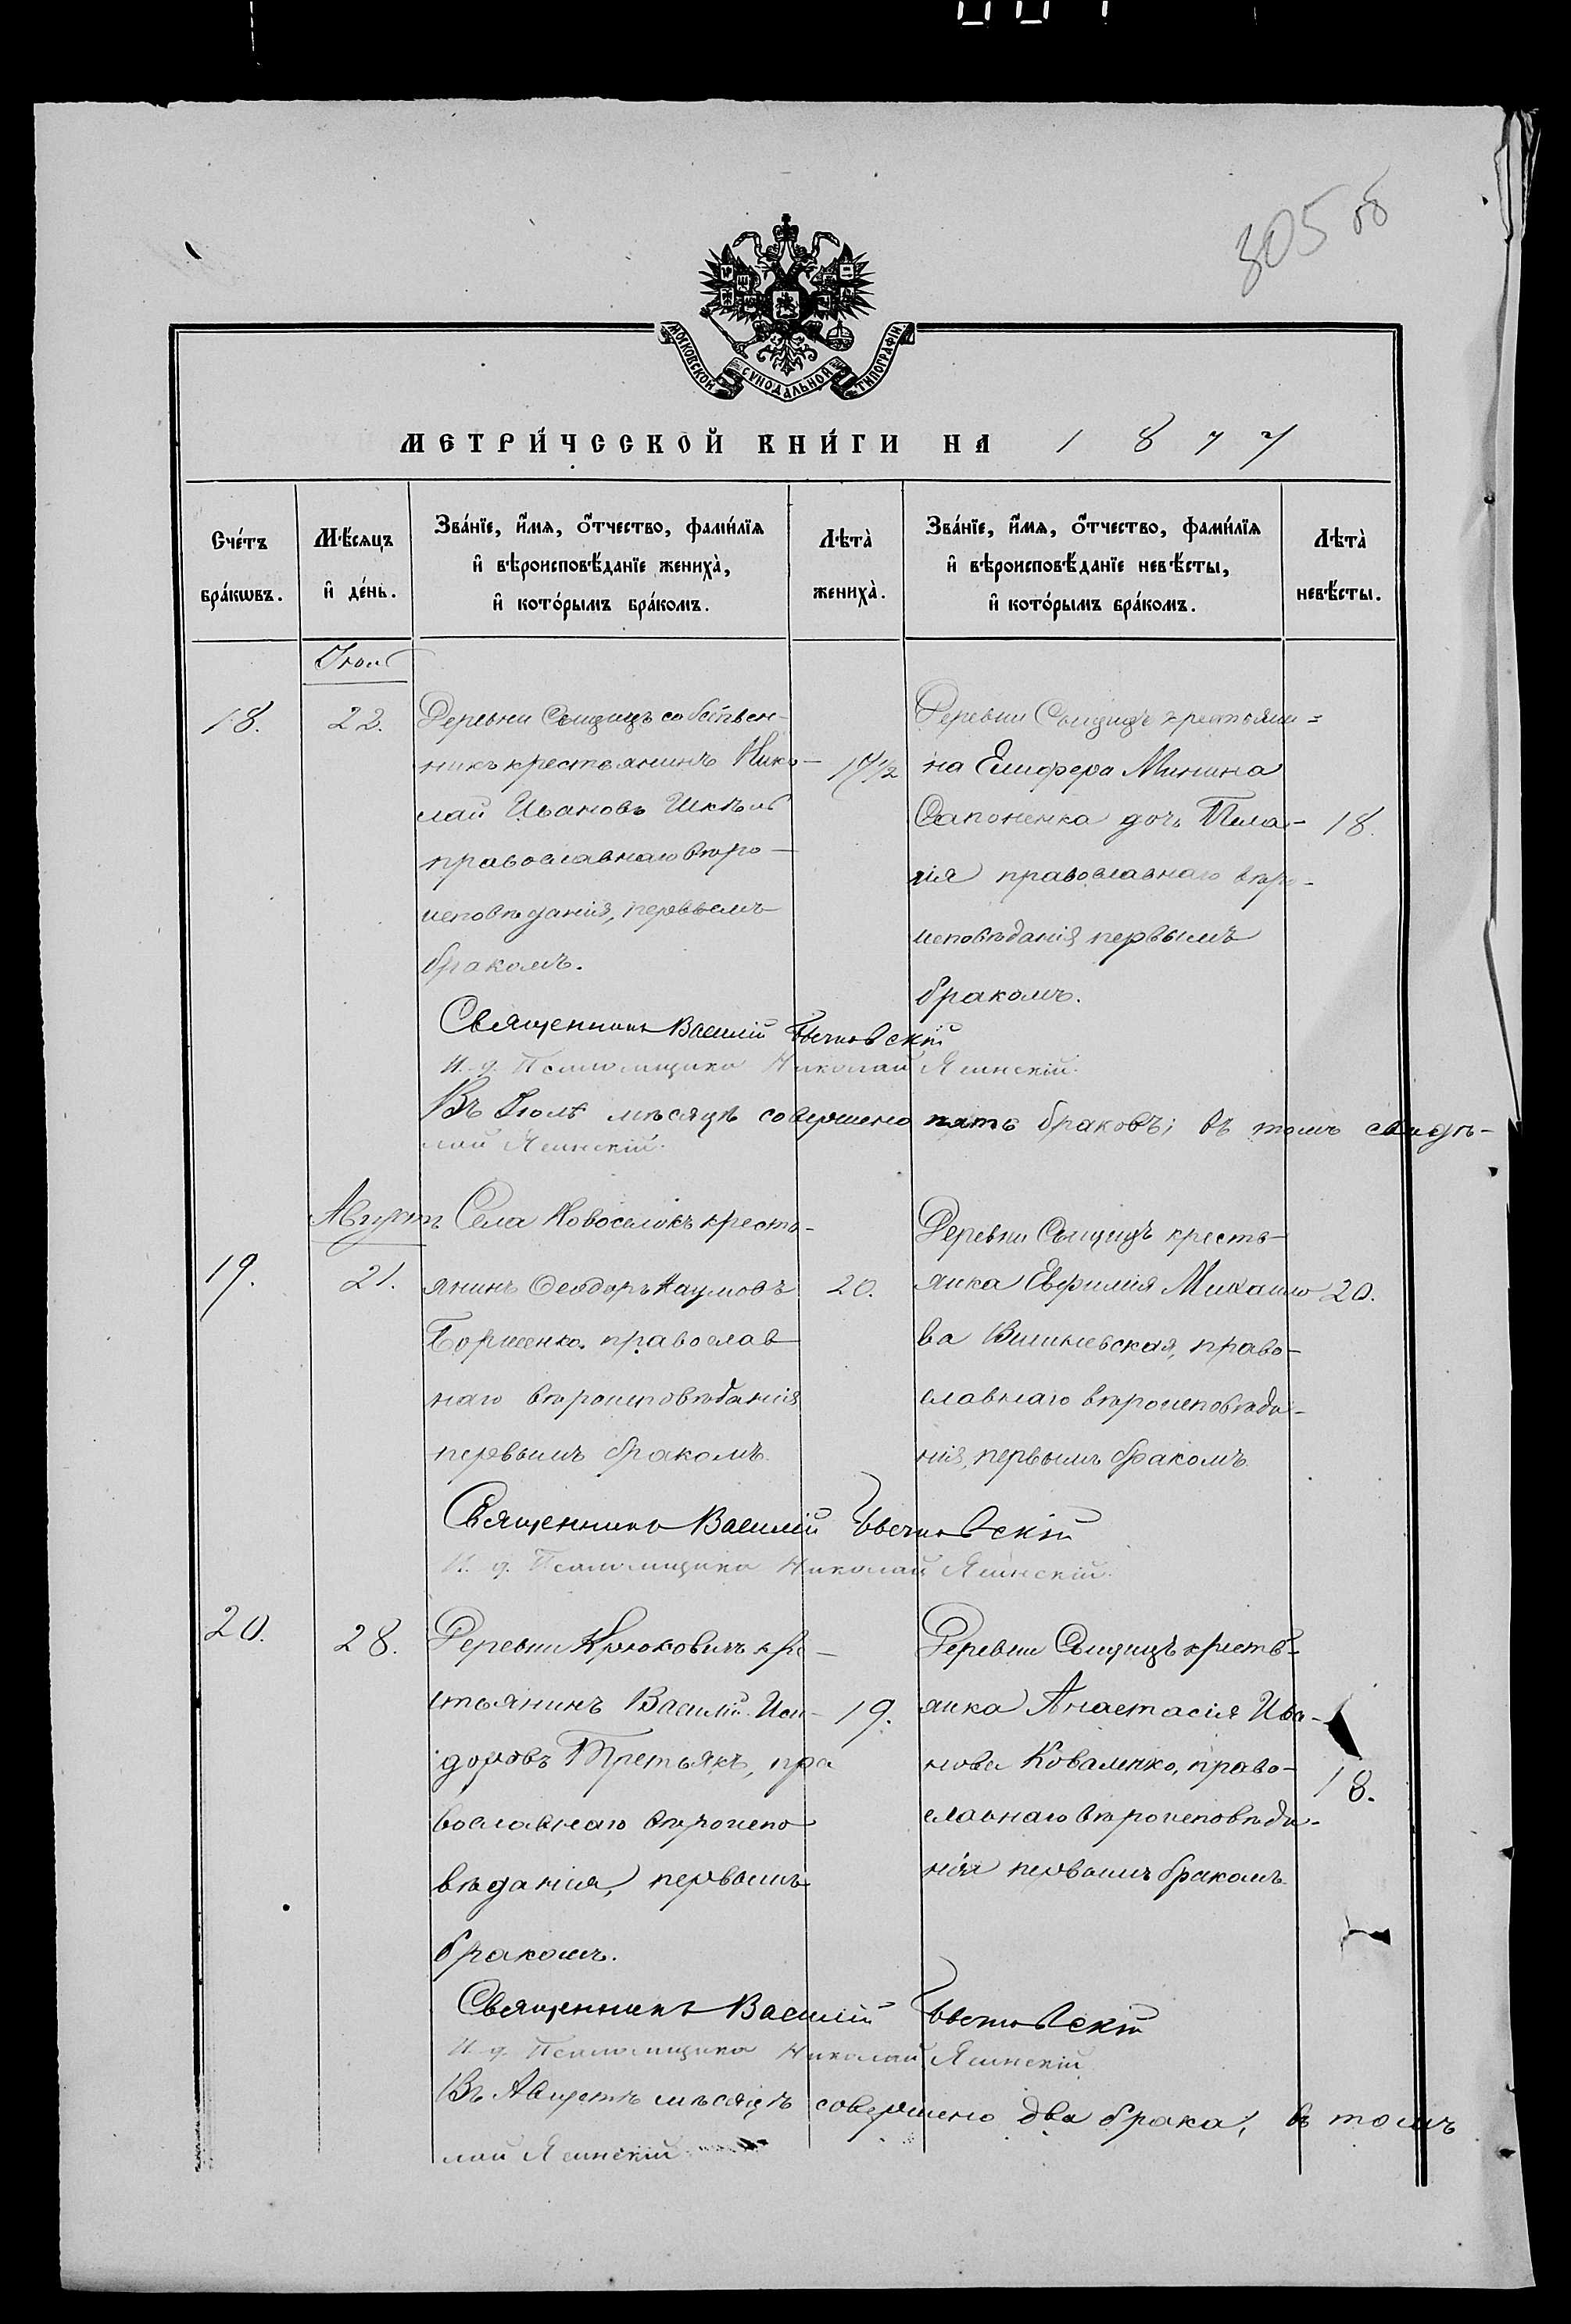 305 об
МОСКОВСКОЙ СУНОДАЛЬНОЙ ТИПОГРАФІИ
МЕТРИ́ЧЕСКОЙ КНИ́ГИ НА 1877
Сче́тъ бра́кѡвъ.
Мѣ́сяцъ и҆ де́нь.
Зва́нїе, и҆́мѧ, ѻ҆́тчество, фами́лїѧ и҆ вѣроисповѣ́данїе жениха̀, и҆ кото́рымъ бра́комъ.
Лѣта̀ жениха̀.
Зва́нїе, и҆́мѧ, ѻ҆́тчество, фами́лїѧ и҆ вѣроисповѣ́данїе невѣ́сты, и҆ кото́рымъ бра́комъ.
Лѣта̀ невѣ́сты.
18.
22.
Деревни Сыщицъ собствен-
никъ крестьянинъ Нико-
лай Ивановъ
православнаго вѣро-
исповѣданія, первымъ
бракомъ.
17½
Деревни Сыщицъ крестьяни-
на Елисфера Минина
Сапоненка дочь Пела-
гія православнаго вѣро-
исповѣданія первымъ
бракомъ.
18.
Священникъ Василій
И. д. Псаломщика Николай Ясинскій.
Въ Іюлѣ мѣсяцѣ совершено пять браковъ; въ томъ свидѣ-
лай Ясинскій.
Августъ
19.
21.
Села Новоселокъ кресть-
янинъ Феодоръ Наумовъ
Борисенко, православ
наго вѣроисповѣданія
первымъ бракомъ.
20.
Деревни Сыщицъ кресть-
янка Евфимія Михайло
ва Вишневская, право-
славнаго вѣроисповѣда-
нія, первымъ бракомъ.
20.
Священникъ Василій
И. д. Псаломщика Николай Ясинскій.
20.
28.
Деревни Крюковичъ кре-
стьянинъ Василій Иси-
доровъ Третьякъ, пра
вославнаго вѣроиспо
вѣданія, первымъ
бракомъ.
19.
Деревни Сыщицъ кресть-
янка Анастасія Ива-
нова Коваленко, право-
славнаго вѣроисповѣда-
нія первымъ бракомъ.
18.
Священникъ Василій
И. д. Псаломщика Николай Ясинскій.
Въ Августѣ мѣсяцѣ совершено два брака, въ томъ
лай Ясинскій